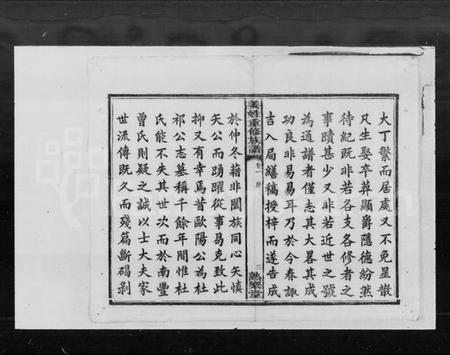 大丁繁而居處又不免星散
凡生娶卒葬顯爵隱德紛然
待紀既非若各支各修者之
事蹟甚少又非若近世之號
為通譜者僅志其大畧其成
功良非易易耳乃於今春諏
吉入局繕稿授梓而遂告成
姜姓重修族譜
卷一 序
三
熱樂堂
於仲冬藉非闔族同心矢慎
矢公而踴躍從事曷克致此
抑又有幸焉昔歐陽公為杜
祁公志墓稱千餘年間惟杜
氏能不失其世次而於南豐
曾氏則疑之誠以士大夫家
世流傳既久而殘篇斷碣剥